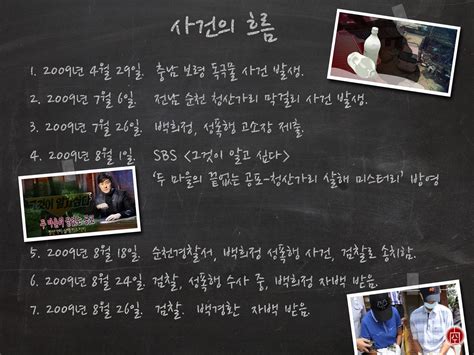 사건의 흐름
1. 2009년 4월 29일. 충남 보령 독극물 사건 발생.
2. 2009년 7월 6일. 전남 순천 청산가리 막걸리 사건 발생.
3. 2009년 7월 26일. 백희정, 성폭행 고소장 제출.
4. 2009년 8월 1일. SBS <그것이 알고 싶다>
'두 마을의 끝없는 공포-청산가리 살해 미스터리' 방영
5. 2009년 8월 18일. 순천경찰서, 백희정 성폭행 사건, 검찰로 송치함.
6. 2009년 8월 24일. 검찰, 성폭행 수사 중, 백희정 자백 받음.
7. 2009년 8월 26일. 검찰. 백경환 자백 받음.